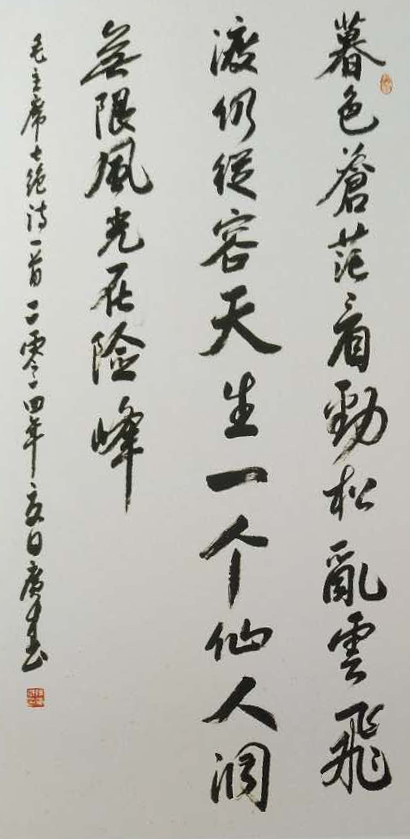 暮色蒼茫看勁松亂雲飛
渡仍從容天生一个仙人洞
無限風光在险峰
毛主席七绝诗一首二零一四年夏日廣生书